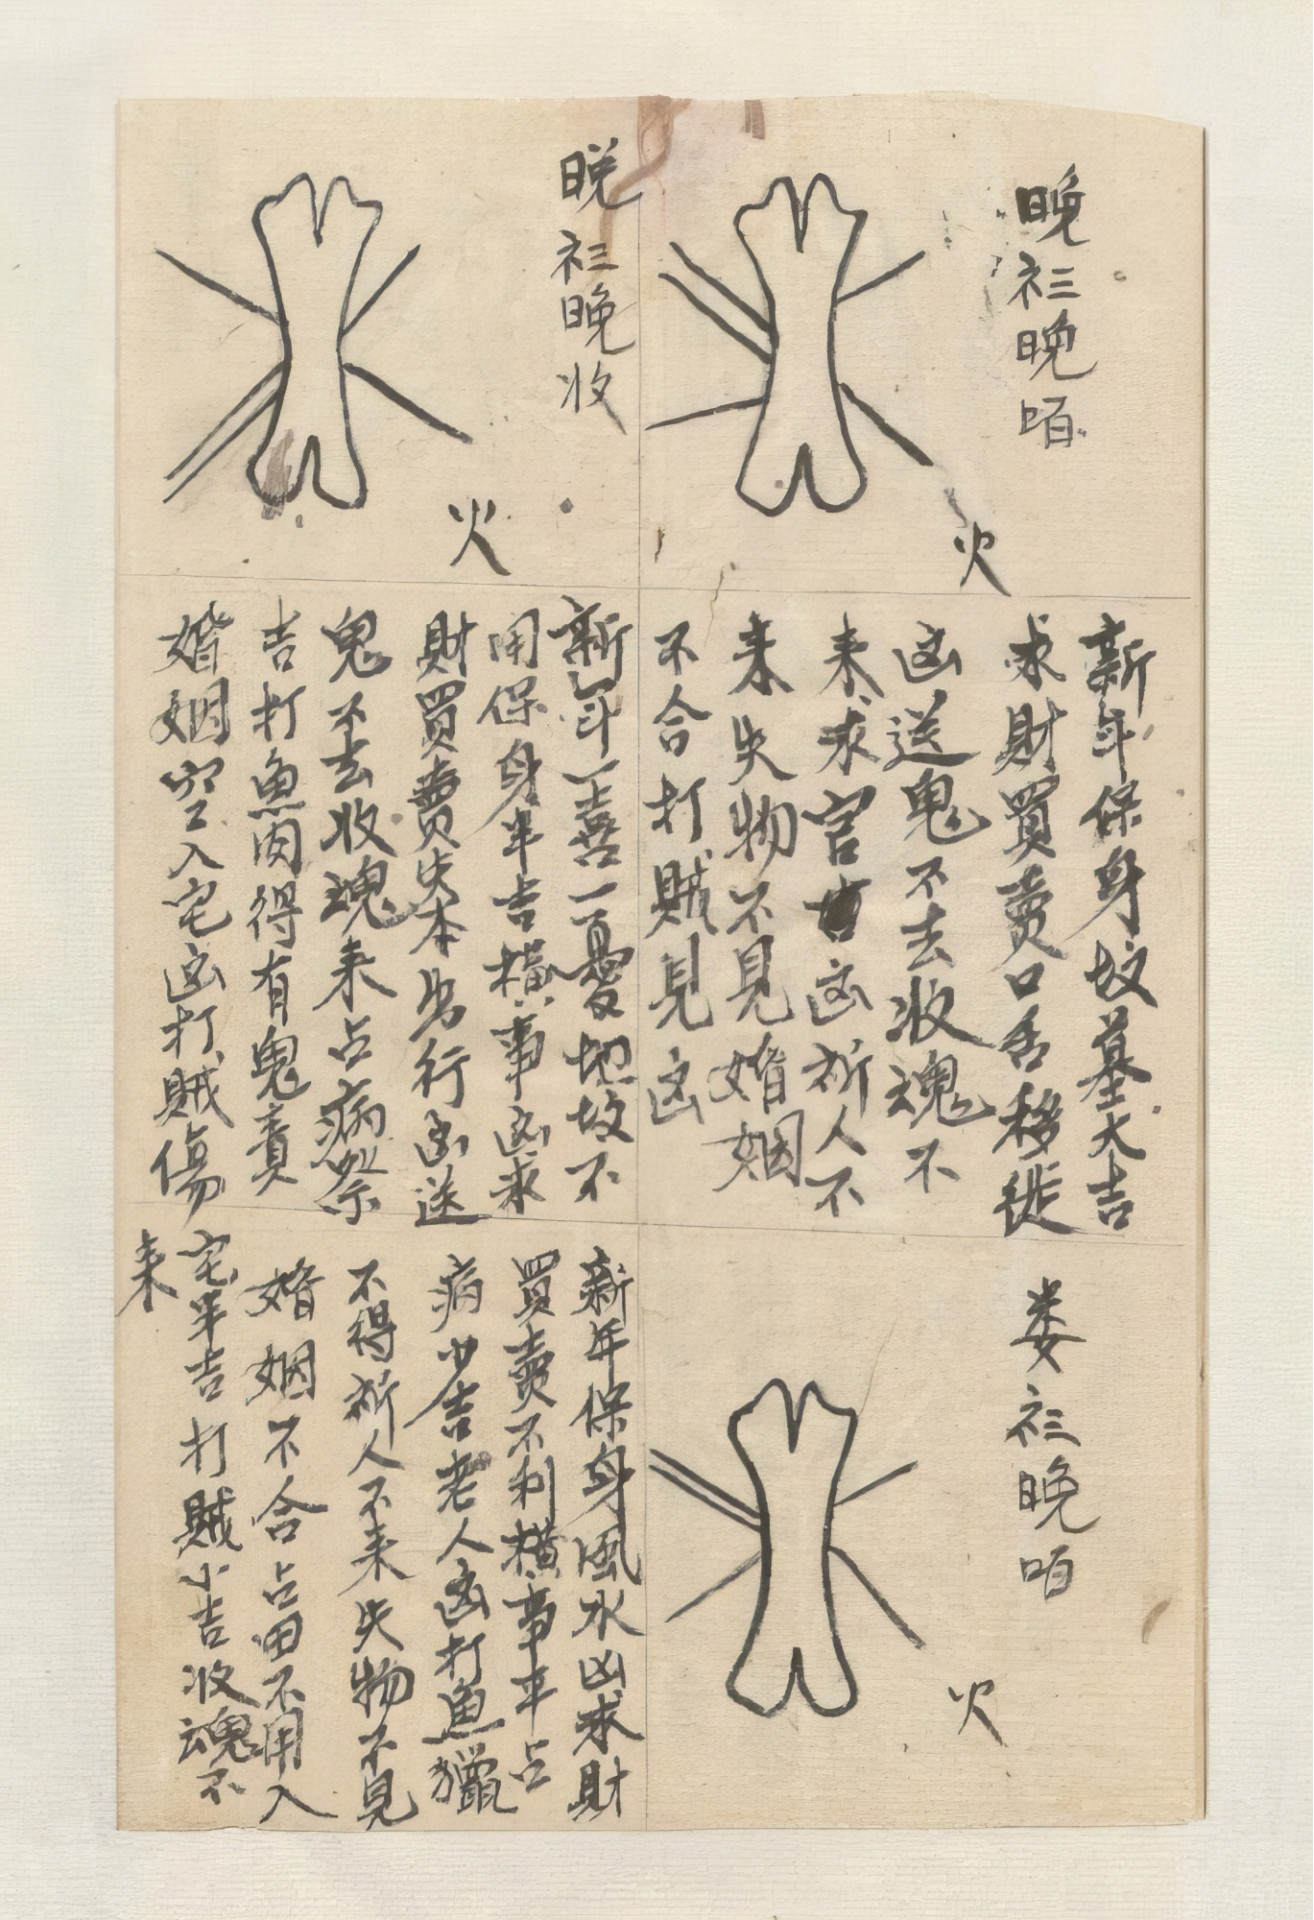 晚衫晚咟
火
新年保身坟墓大吉
求財買賣口舌移徙
凶送鬼不去收魂不
来求官凶祈人不
来失物不見婚姻
不合打賊見凶
晚衫晚收
火
新年一喜一憂地坟不
用保身半吉橫事凶求
財買賣失本出行凶送
鬼不去收魂来占病祭
吉打魚肉得有鬼責
婚姻空入宅凶打賊傷
娄衫晚咟
火
新年保身風水凶求財
買賣不利橫事平占
病少吉老人凶打魚獵
不得祈人不来失物不見
婚姻不合占田不用入
宅半吉打賊小吉收魂不
来